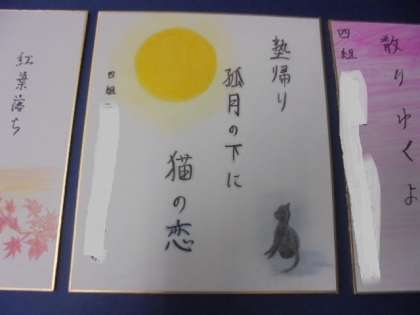 散りゆくよ
四組
塾帰り
孤月の下に
猫の恋
四組
紅葉落ち